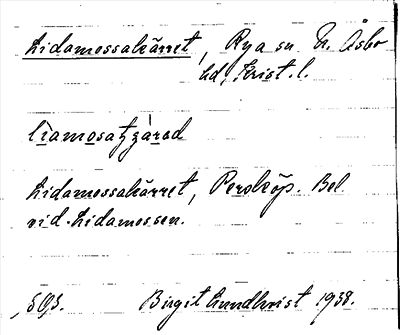 Lidamossakärret, Rya sn N. Åsbo
hd, Krist. l.
Lidamossakärret, Perstorp. Bel.
vid Lidamossen.
Birgit Lundkvist 1938.